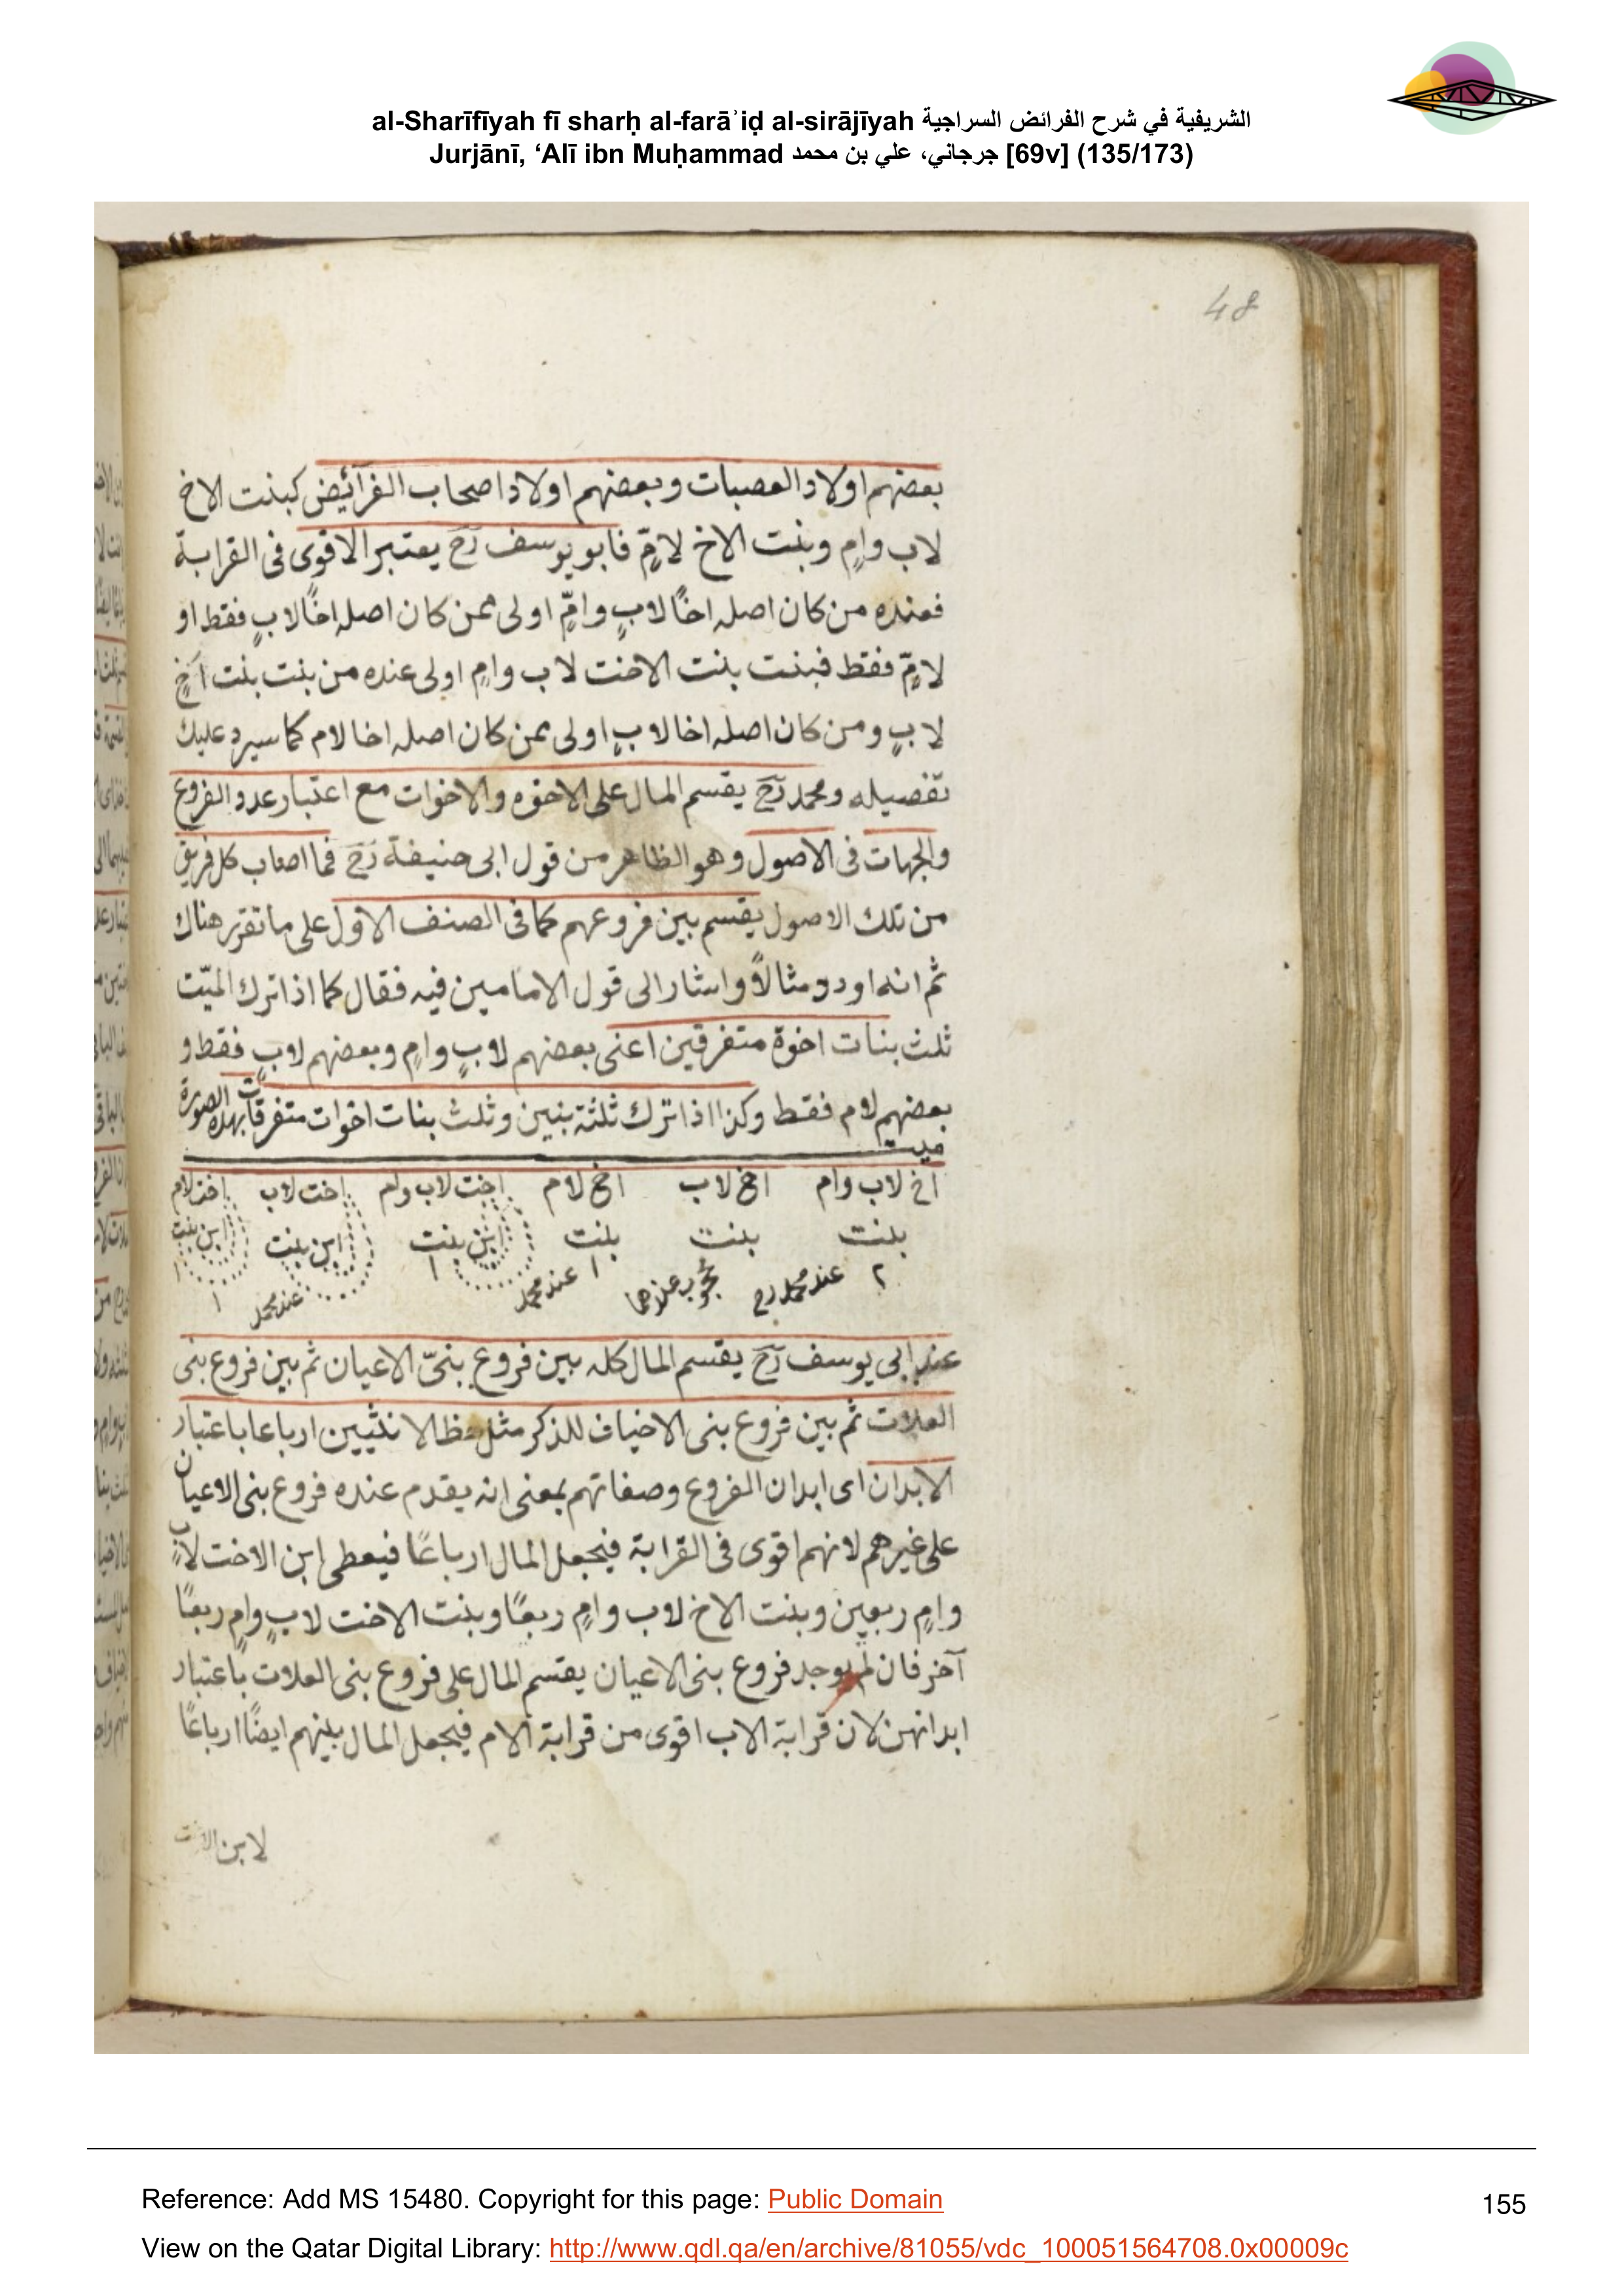 al-Sharīfīyah fī sharḥ al-farāʾiḍ al-sirājīyah الشريفية في شرح الفرائض السراجية
Jurjānī, ʻAlī ibn Muḥammad جرجاني، علي بن محمد [69v] (135/173)
48
بعضهم اولاد العصبات وبعضهم اولاد اصحاب الفرآئيض كبنت الاخ
لاب وامٍ وبنت الاخ لامٍّ فابو يوسف رح يعتبر الاقوى فى القرابة
فعنده من كان اصله اخًا لابٍ وامٍّ اولى ممن كان اصله اخًا لابٍ فقط او
لامٍّ فقط فبنت بنت الاخت لاب وامٍ اولى عنده من بنت بنت اخٍ
لابٍ ومن كان اصله اخا لابٍ اولى ممن كان اصله اخا لام كما سيرد عليك
تفصيله ومحمد رح يقسم المال على الاخوه والاخوات مع اعتبار عدد الفروع
والجهات فى الاصول وهو الظاهر من قول ابى حنيفة رح فما اصاب كل فريق
من تلك الاصول يقسم بين فروعهم كما فى الصنف الاول على ما تقرر هناك
ثم انه اورد مثالاً واشار الى قول الامامين فيه فقال كما اذا ترك الميّت
ثلث بنات اخوة متفرقين اعنى بعضهم لابٍ وامٍ وبعضهم لابٍ فقط و
بعضهم لام فقط وكذا اذا ترك ثلثة بنين وثلث بنات اخوات متفرقات بهذه الصورة
ميت
اخ لاب وام اخ لاب اخ لام اخت لاب وام اخت لاب اخت لام
بنت بنت بنت ابن بنت ابن بنت ابن بنت
٢ عند محمد رح محجوب عندهما ١ عند محمد ١ عند محمد ١ ١
عند ابى يوسف رح يقسم المال كله بين فروع بنىّ الاعيان ثم بين فروع بنى
العلات ثم بين فروع بنى الاخياف للذكر مثل حظ الانثيين ارباعا باعتبار
الابدان اى ابدان الفروع وصفاتهم بمعنى انه يقدم عنده فروع بنى الاعيان
على غيرهم لانهم اقوى فى القرابة فيجعل المال ارباعًا فيعطى ابن الاخت لابٍ
وامٍ ربعين وبنت الاخ لاب وامٍ ربعًا وبنت الاخت لابٍ وامٍ ربعًا
آخر فان لم يوجد فروع بنى الاعيان يقسم المال على فروع بنى العلات باعتبار
ابدانهن لان قرابة الاب اقوى من قرابة الام فيجعل المال بينهم ايضًا ارباعًا
لابن الاخت
Reference: Add MS 15480. Copyright for this page: Public Domain
155
View on the Qatar Digital Library: http://www.qdl.qa/en/archive/81055/vdc_100051564708.0x00009c